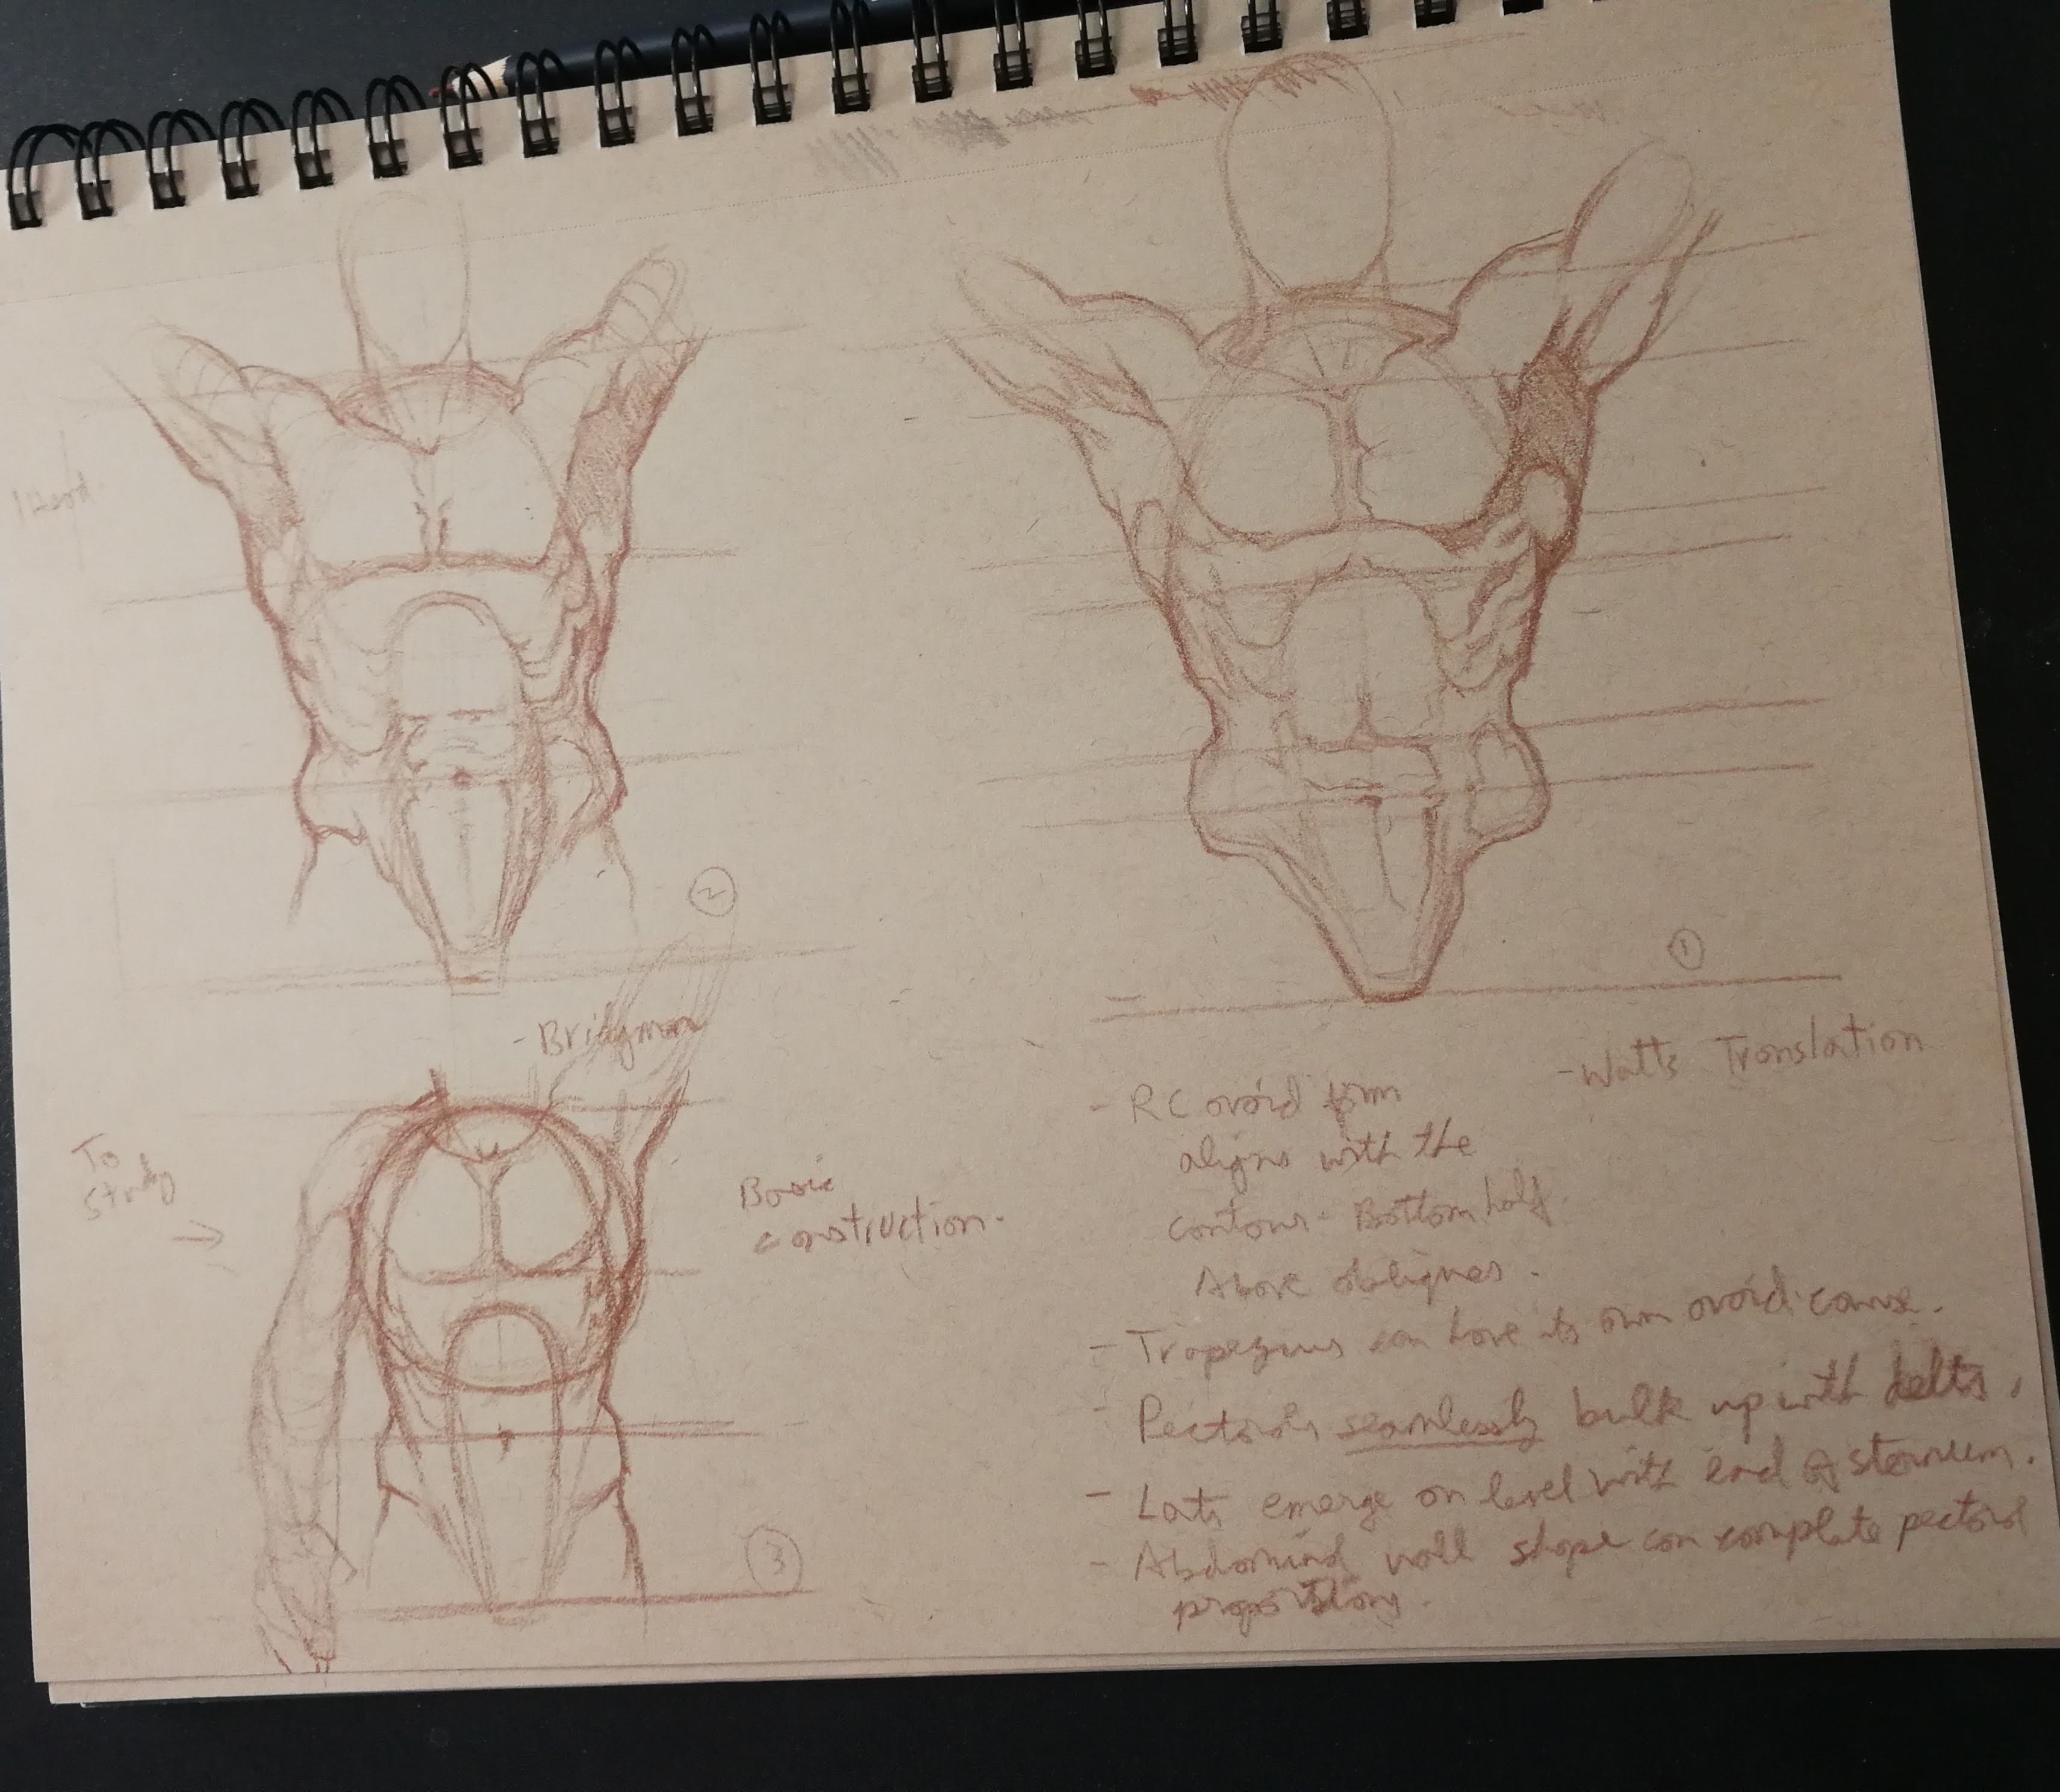 1 Head
2
- Bridgman
1
- Watts Translation
To
Study
→
Basic
construction.
3
- RC ovoid form
aligns with the
contour - Bottom half
Above obliques.
- Trapezius can have its own ovoid canvse.
- Pectorals seamlessly bulk up with delts,
- Lats emerge on level with end of sternum.
- Abdominal wall shape can complete pectoral
proportions.